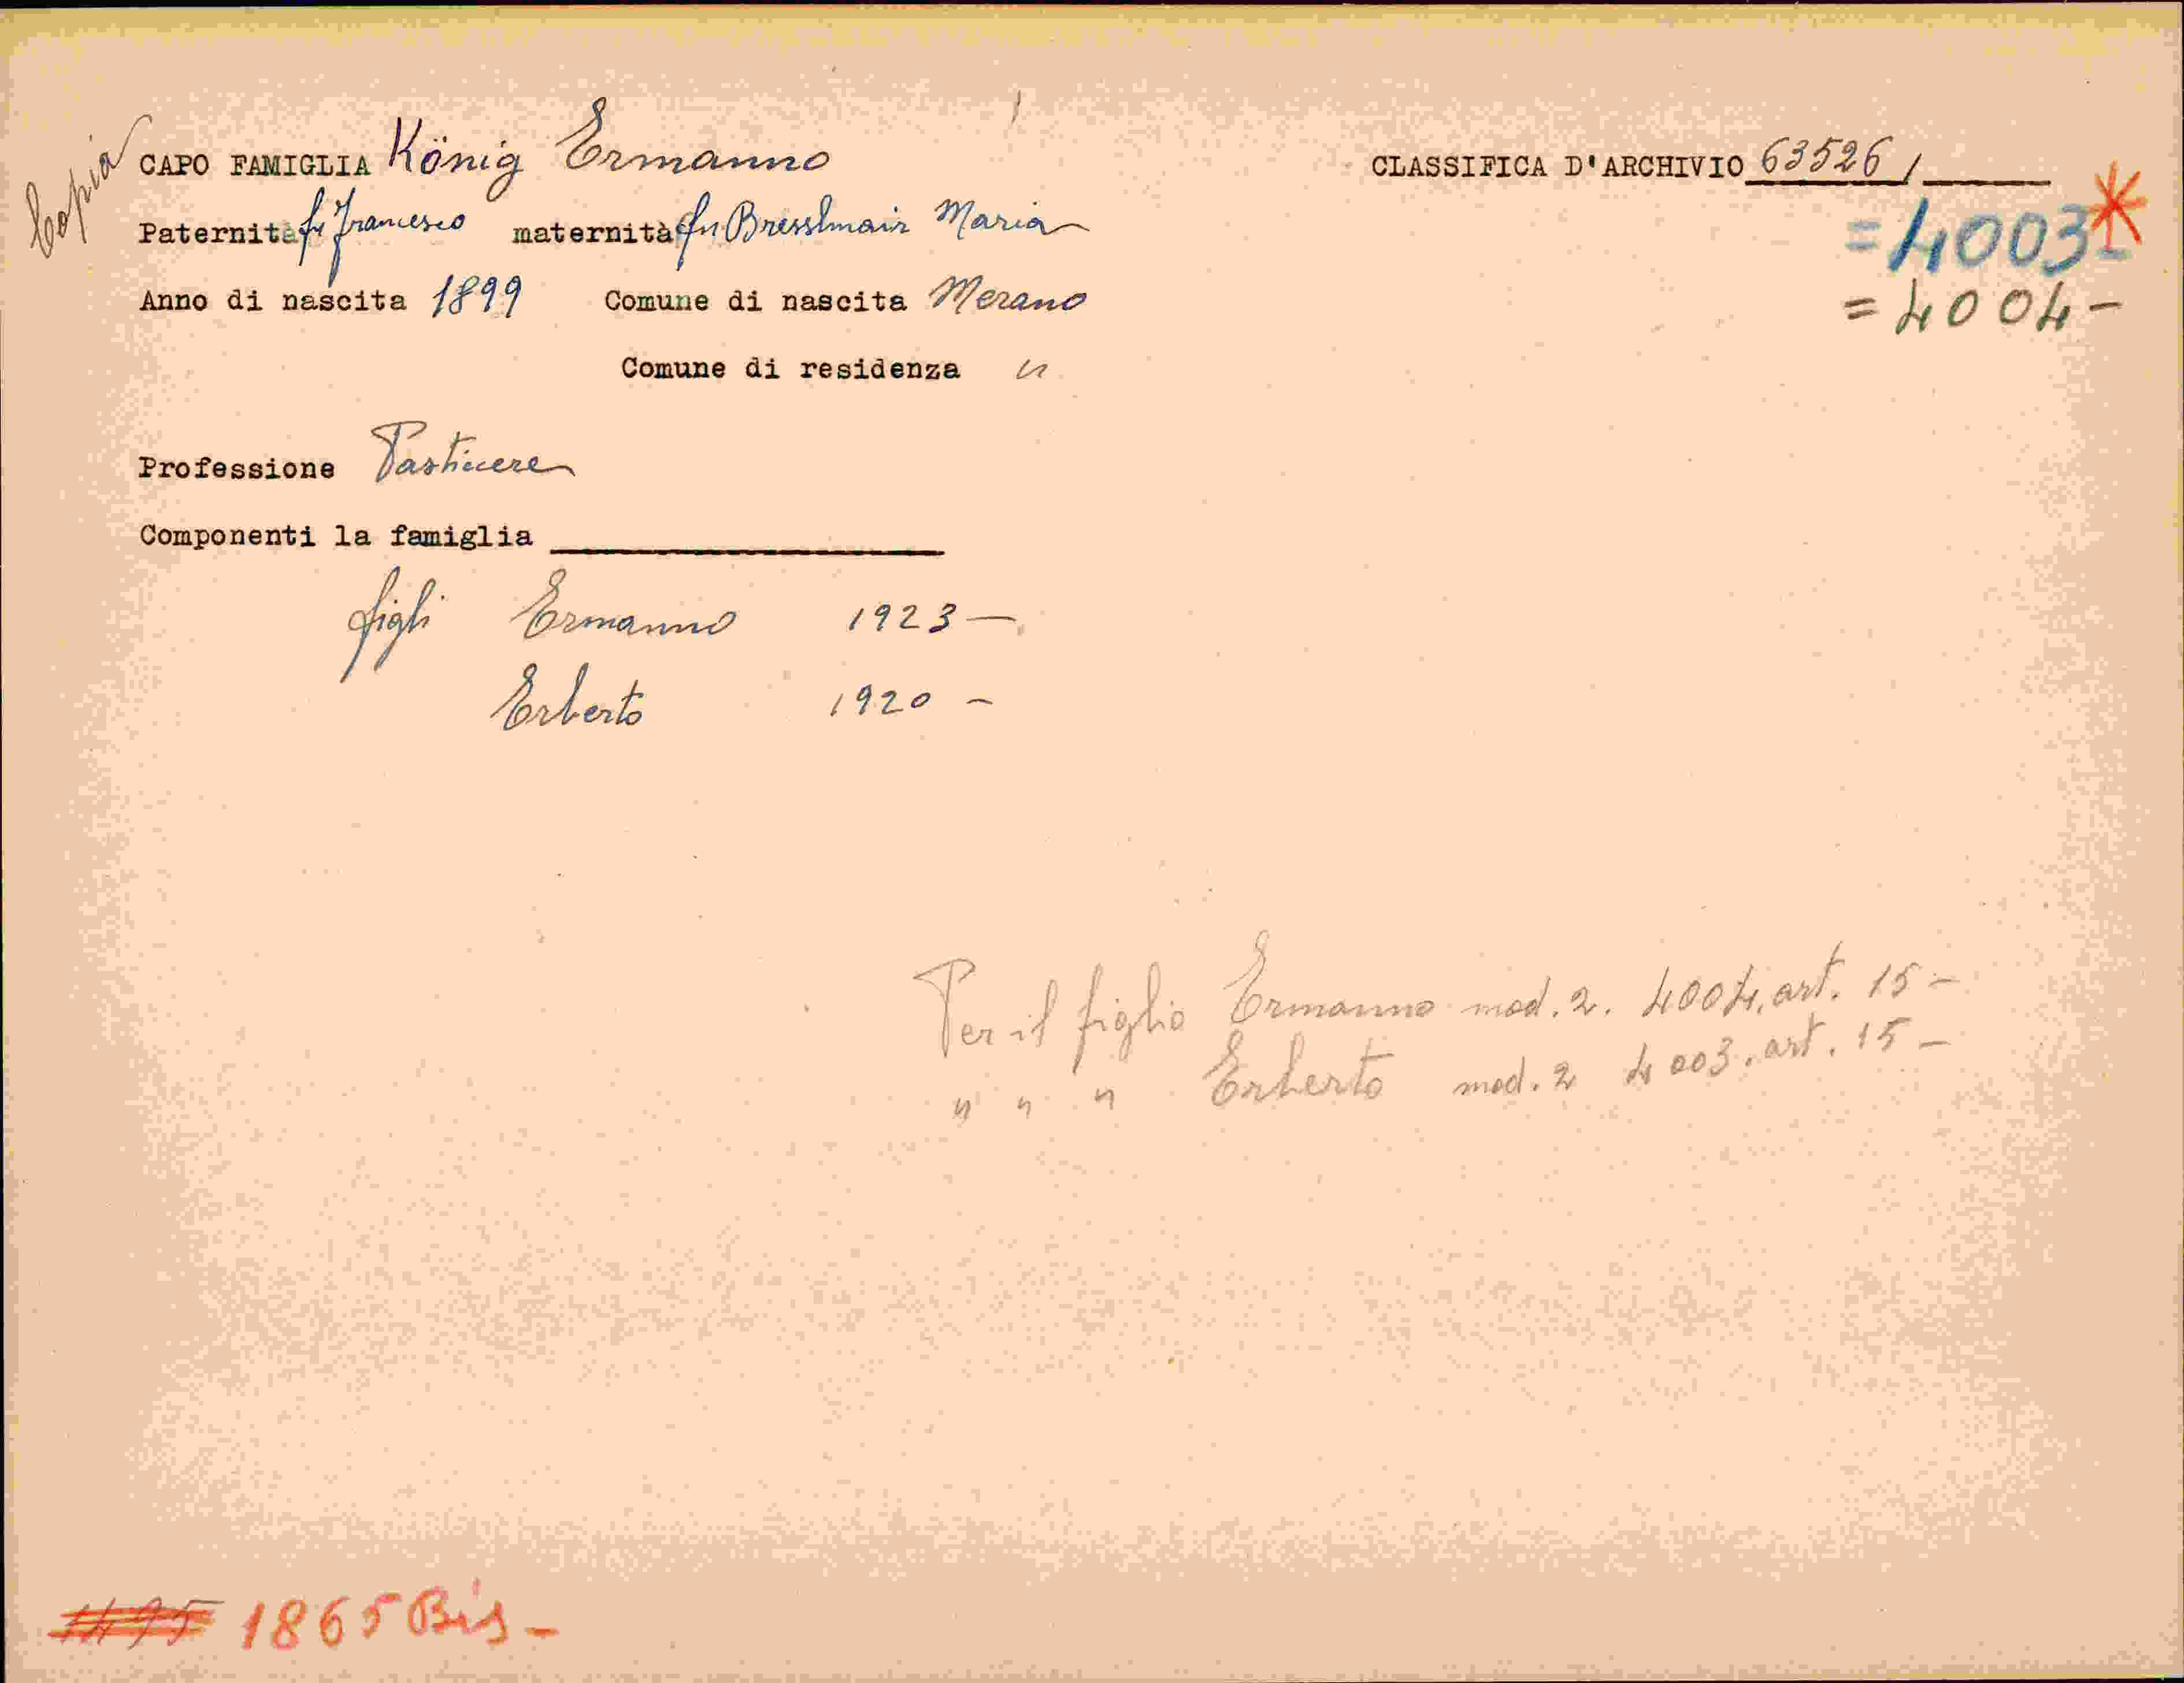 Copia
CAPO FAMIGLIA König Ermanno
CLASSIFICA D'ARCHIVIO 63526 /
Paternità fu Francesco maternità fu Bresslmair Maria
= 4003 -
Anno di nascita 1899 Comune di nascita Merano
= 4004 -
Comune di residenza "
Professione Pasticcere
Componenti la famiglia
figli Ermanno 1923 —
Erberto 1920 -
Per il figlio Ermanno mod. 2. 4004. art. 15 -
" " " Erberto mod. 2 4003. art. 15 -
1865 Bis -